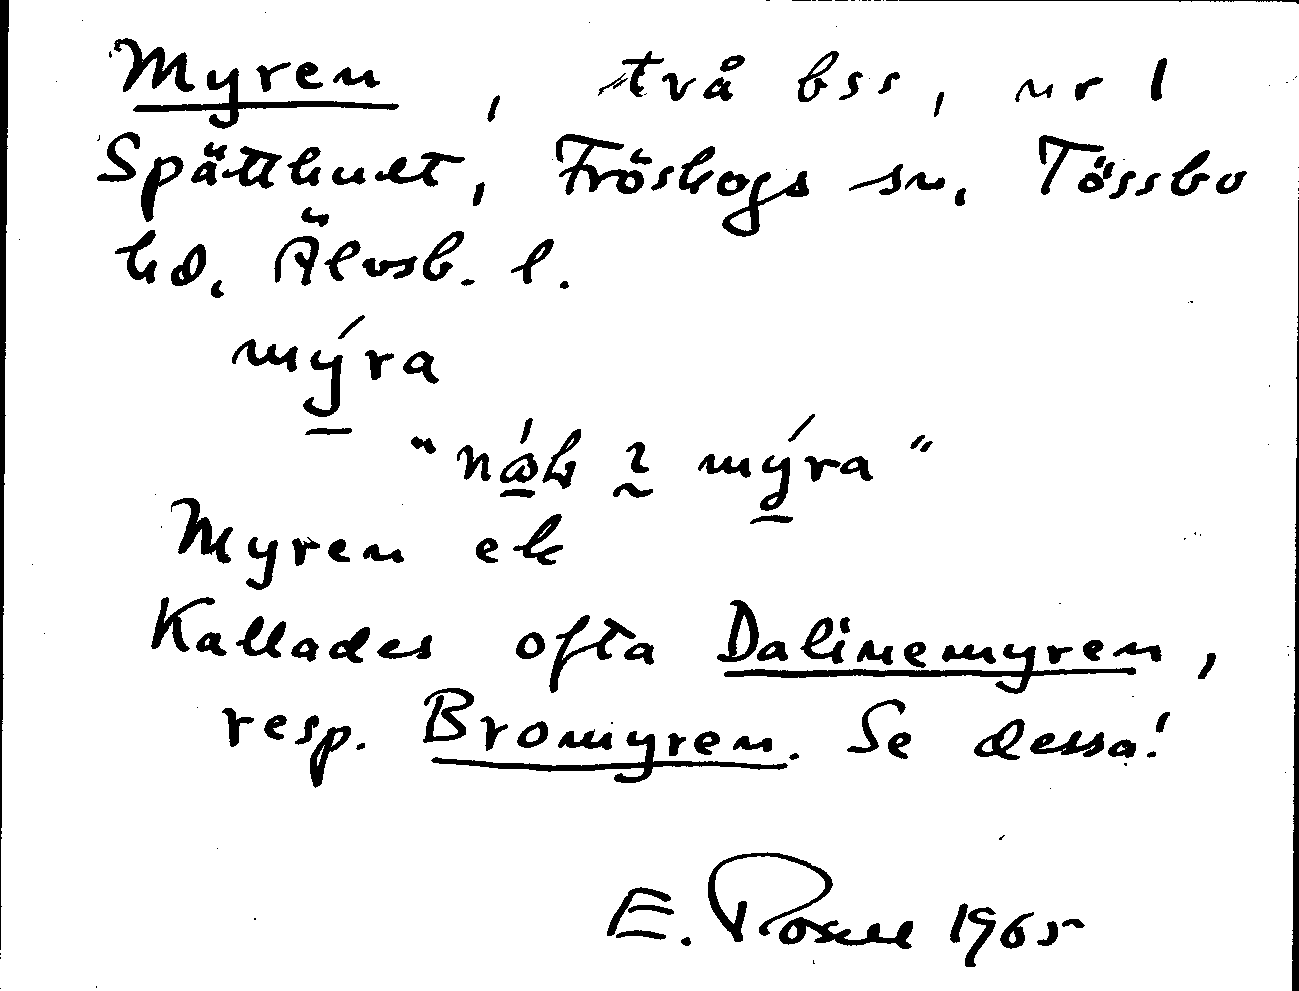 Myren, två bss, nr 1
Spätthult, Fröskogs sn, Tössbo
hd, Älvsb. l.
mýra
" mýra"
Myren ek
Kallades ofta Dalinemyren,
resp. Bromyren. Se dessa!
E. 1965